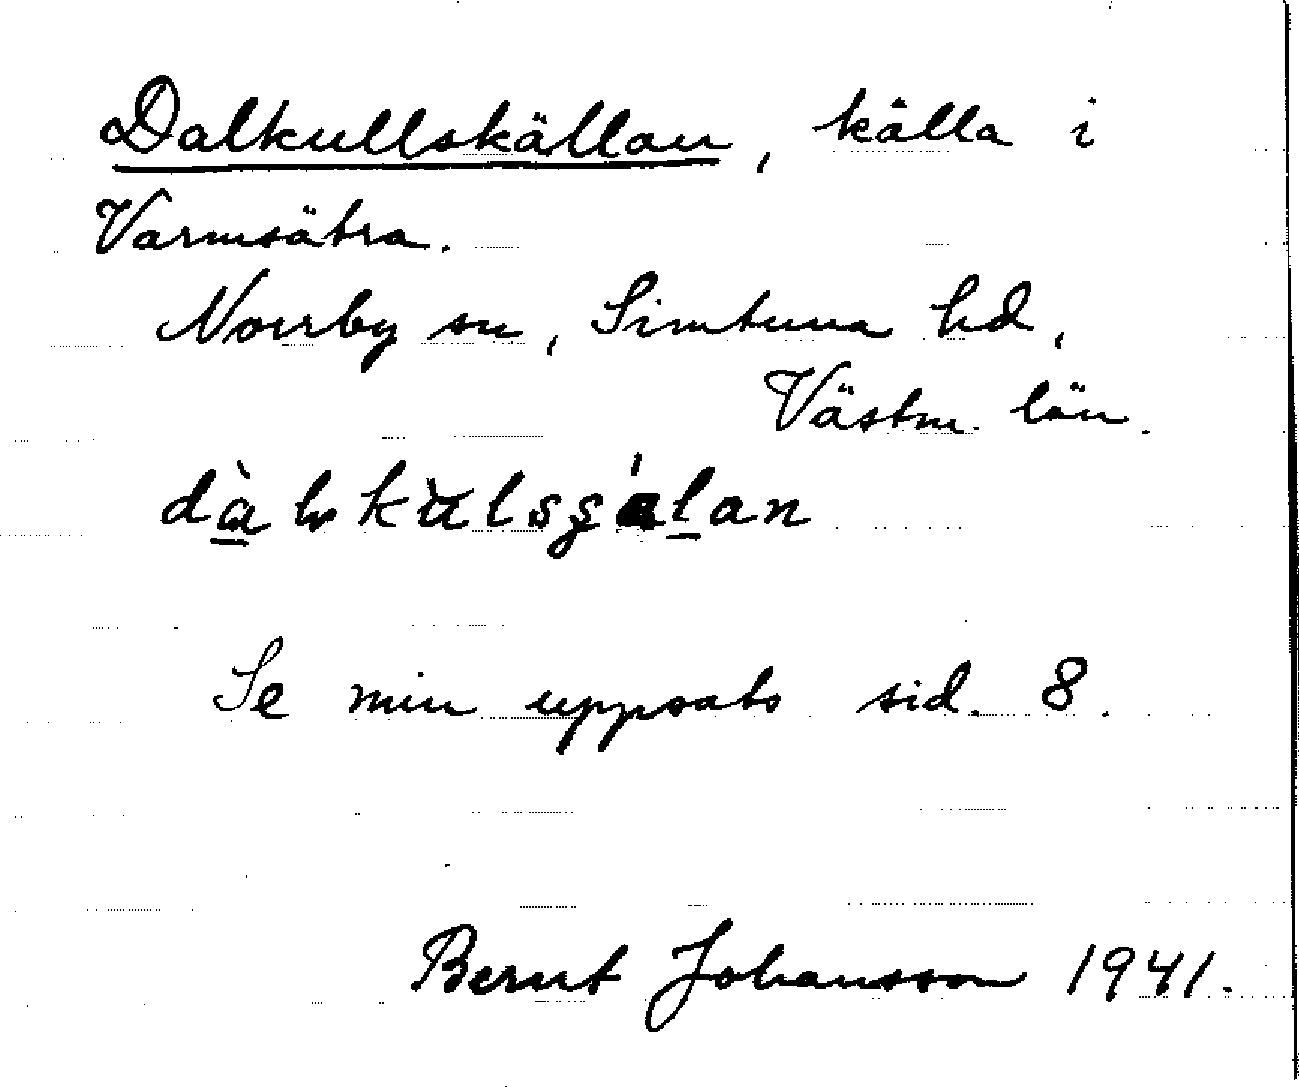 Dalkullskällan, källa i
Varmsätra.
Norrby sn, Simtuna hd,
Västm. län.
Se min uppsats sid. 8.
Bernt Johansson 1941.